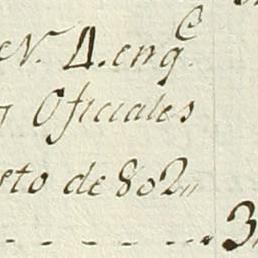 N. 4. enq.e
y Oficiales
sto de 802,,
3